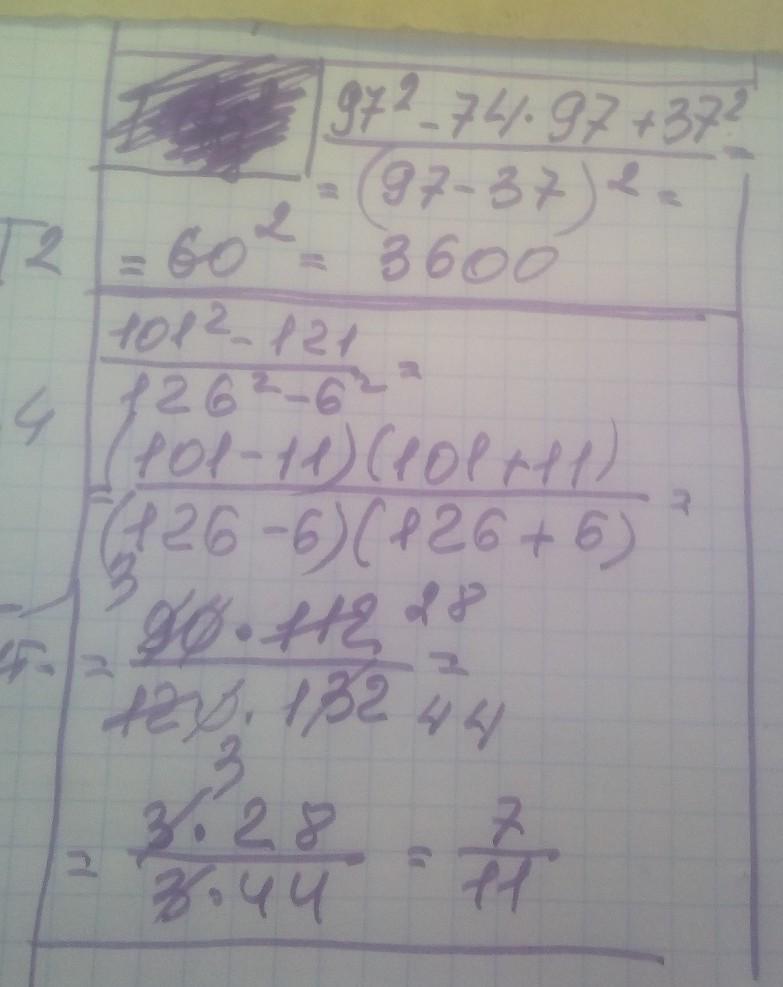 97² - 74 · 97 + 37² =
= (97 - 37)² =
= 60² = 3600
101² - 121
126² - 6² =
(101 - 11)(101 + 11)
= (126 - 6)(126 + 6) =
3
= 90 · 112 28 =
120 · 132 44
3
= 3 · 28 = 7
3 · 44 11
√2
4